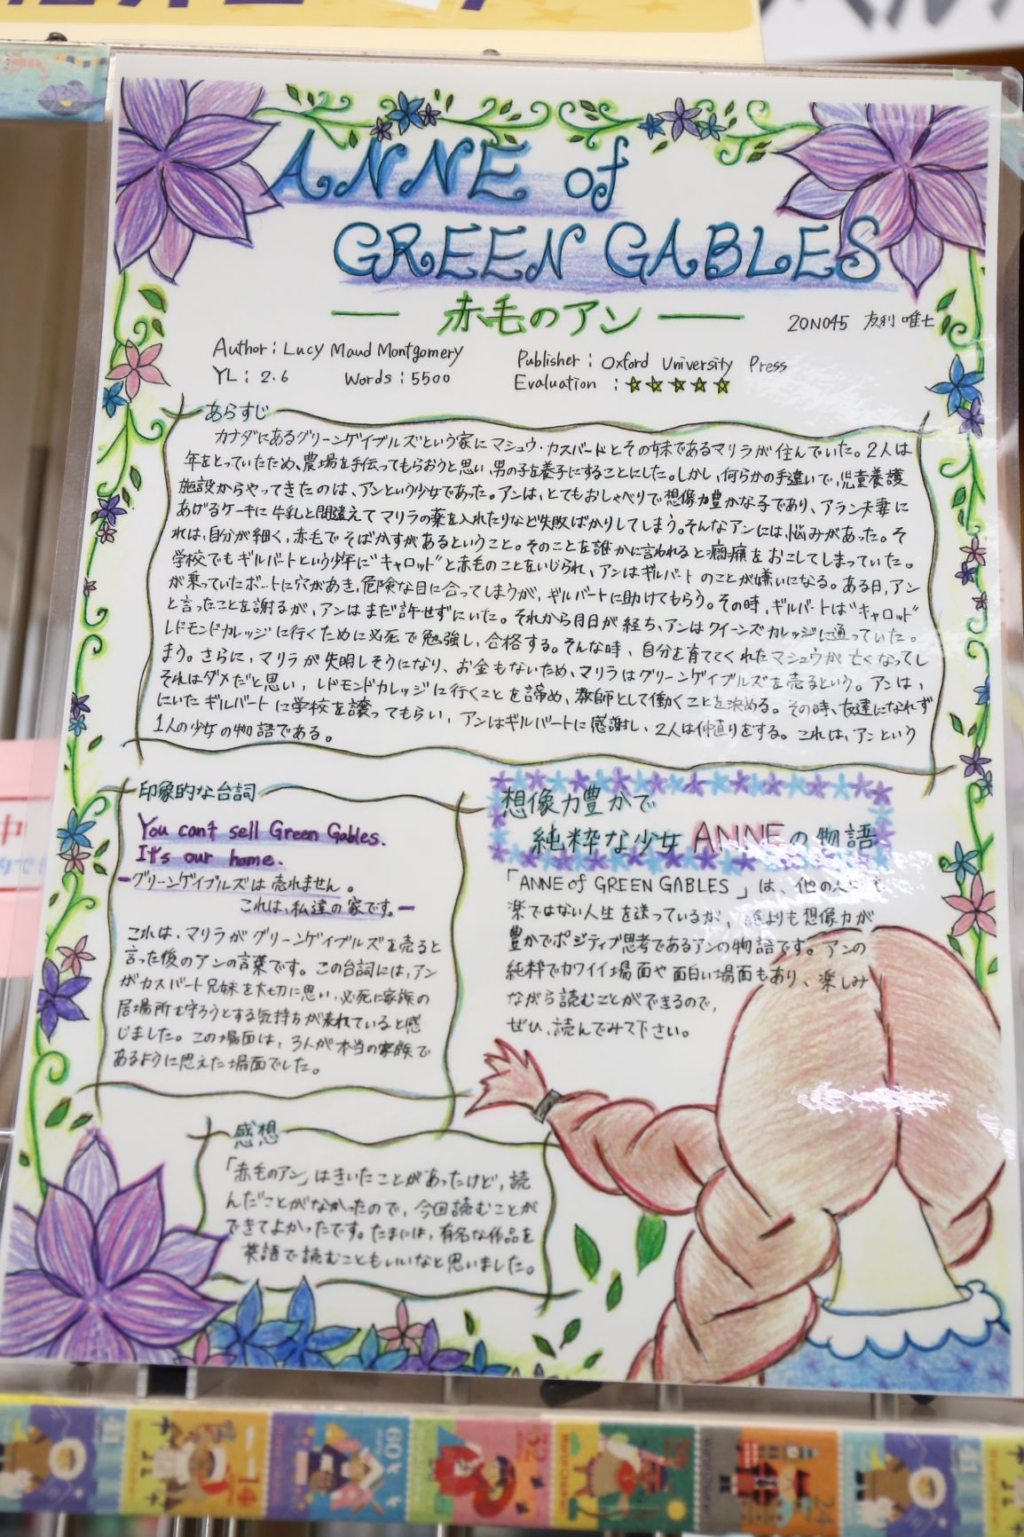 ANNE of
GREEN GABLES
赤毛のアン
20N045 友利 唯士
Author : Lucy Maud Montgomery
Publisher : Oxford University Press
YL : 2.6 Words : 5500
Evaluation : ☆☆☆☆☆
あらすじ
カナダにあるグリーンゲイブルズという家にマシュウ・カスバードとその妹であるマリラが住んでいた。2人は
年をとっていたため、農場を手伝ってもらおうと思い、男の子を養子にすることにした。しかし、何らかの手違いで、児童養護
施設からやってきたのは、アンという少女であった。アンは、とてもおしゃべりで想像力豊かな子であり、アラン夫妻に
あげるケーキに牛乳と間違えてマリラの薬を入れたりなど失敗ばかりしてしまう。そんなアンには、悩みがあった。そ
れは、自分が細く、赤毛でそばかすがあるということ。そのことを誰かに言われると癇癪をおこしてしまっていた。
学校でもギルバートという少年に"キャロット"と赤毛のことをいじられ、アンはギルバートのことが嫌いになる。ある日、アン
が乗っていたボートに穴があき、危険な目に合ってしまうが、ギルバートに助けてもらう。その時、ギルバートは"キャロット"
と言ったことを謝るが、アンはまだ許せずにいた。それから月日が経ち、アンはクイーンズカレッジに通っていた。
レドモンドカレッジに行くために必死で勉強し、合格する。そんな時、自分を育ててくれたマシュウが亡くなってし
まう。さらに、マリラが失明しそうになり、お金もないため、マリラはグリーンゲイブルズを売るという。アンは、
それはダメだと思い、レドモンドカレッジに行くことを諦め、教師として働くことを決める。その時、友達になれず
にいたギルバートに学校を譲ってもらい、アンはギルバートに感謝し、2人は仲直りをする。これは、アンという
1人の少女の物語である。
印象的な台詞
You can't sell Green Gables.
It's our home.
ーグリーンゲイブルズは売れません。
これは、私達の家です。ー
これは、マリラがグリーンゲイブルズを売ると
言った後のアンの言葉です。この台詞には、アン
がカスバート兄妹を大切に思い、必死に家族の
居場所を守ろうとする気持ちが表れていると感
じました。この場面は、3人が本当の家族で
あるように思えた場面でした。
想像力豊かで
純粋な少女 ANNEの物語
「ANNE of GREEN GABLES」は、他の人
楽ではない人生を送っているが、誰よりも想像力が
豊かでポジティブ思考であるアンの物語です。アンの
純粋でカワイイ場面や面白い場面もあり、楽しみ
ながら読むことができるので、
ぜひ、読んでみて下さい。
感想
「赤毛のアン」はきいたことがあったけど、読
んだことがなかったので、今回読むことが
できてよかったです。たまには、有名な作品を
英語で読むこともいいなと思いました。